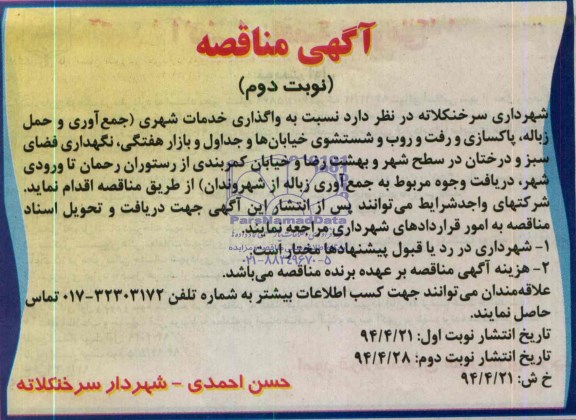 آگهی مناقصه
(نوبت دوم)
شهرداری سرخنکلاته در نظر دارد نسبت به واگذاری خدمات شهری (جمع‌آوری و حمل
زباله، پاکسازی و رفت و روب و شستشوی خیابان‌ها و جداول و بازار هفتگی، نگهداری فضای
سبز و درختان در سطح شهر و بهشت زهرا و خیابان کمربندی از رستوران رحمان تا ورودی
شهر، دریافت وجوه مربوط به جمع‌آوری زباله از شهروندان) از طریق مناقصه اقدام نماید.
شرکتهای واجدشرایط می‌توانند پس از انتشار این آگهی جهت دریافت و تحویل اسناد
مناقصه به امور قراردادهای شهرداری مراجعه نمایند.
ParsNamadData
۱- شهرداری در رد یا قبول پیشنهادها مختار است.
۰۲۱-۸۸۳۴۹۶۷۰-۵
۲- هزینه آگهی مناقصه بر عهده برنده مناقصه می‌باشد.
علاقه‌مندان می‌توانند جهت کسب اطلاعات بیشتر به شماره تلفن ۳۲۳۰۳۱۷۲-۰۱۷ تماس
حاصل نمایند.
تاریخ انتشار نوبت اول: ۹۴/۴/۲۱
تاریخ انتشار نوبت دوم: ۹۴/۴/۲۸
خ ش: ۹۴/۴/۲۱
حسن احمدی - شهردار سرخنکلاته